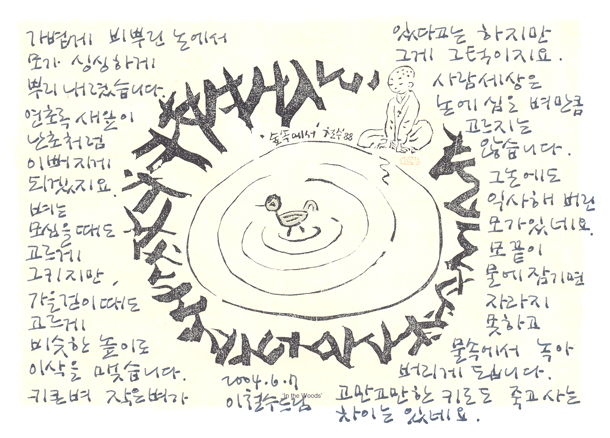 가볍게 비뿌린 논에서
모가 싱싱하게
뿌리 내렸습니다.
연초록 새잎이
난초처럼
이뻐지게
되겠지요.
벼는
모심을 때도
고르게
그러지만,
가을걷이 때도
고르게
비슷한 높이로
이삭을 맺습니다.
키큰벼 작은벼가
있다고는 하지만
그게 그턱이지요.
사람세상은
논에 심은 벼만큼
고르지는
않습니다.
그논에도
익사해 버린
모가있네요.
모끝이
물에 잠기면
자라지
못하고
물속에서 녹아
버리게 됩니다.
고만고만한 키로도 죽고 사는
차이는 있네요.
'숲속에서' 철수 88
2004.6.7
이철수드림
'In the Woods'